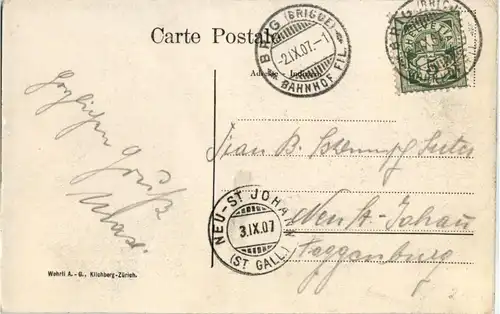 Carte Postale
BRIG (BRIGUE)
-2.IX.07.-1
BAHNHOF FIL.
Adresse - Indirizzo
Herzlichen
Gruß
Max.
Frau B. Suter
Neu St. Johann
Toggenburg
NEU-ST JOHANN
3.IX.07
(ST GALL.)
Wehrli A.-G., Kilchberg-Zürich.